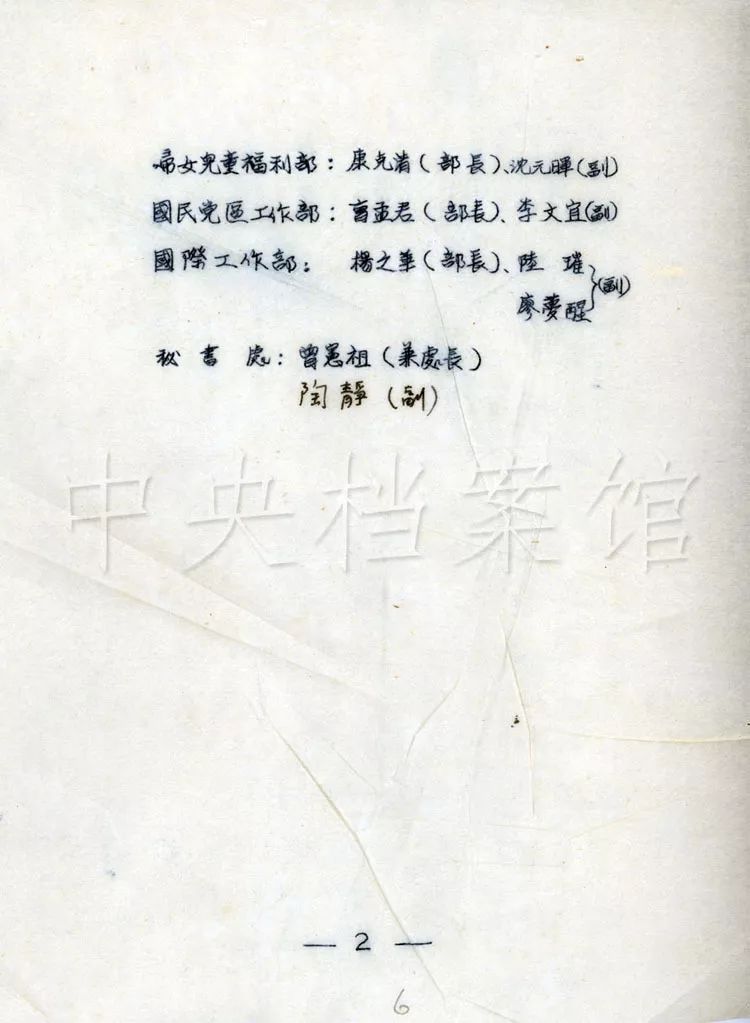 婦女兒童福利部：康克清（部長）、沈元暉（副）
國民党區工作部：曹孟君（部長）、李文宜（副）
國際工作部：楊之華（部長）、陸璀
廖夢醒（副）
秘書處：曾憲祖（兼處長）
陶靜（副）
中央档案馆
— 2 —
6